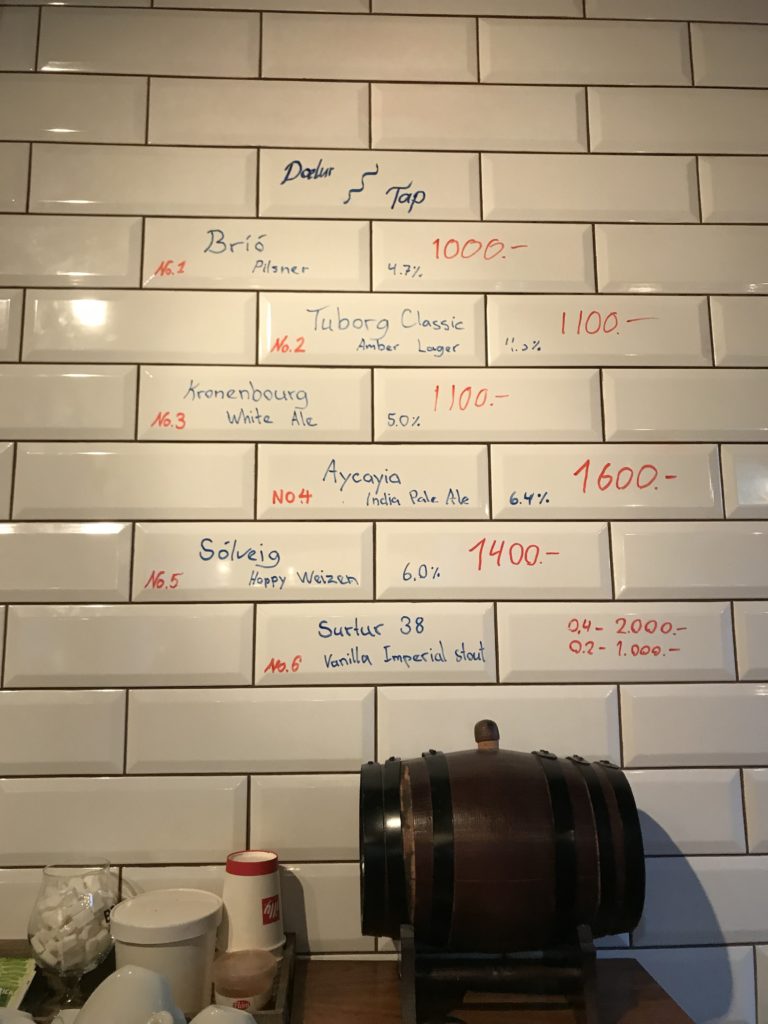 Dælur
Tap
Bríó 1000.-
No.1 Pilsner 4.7%
Tuborg Classic 1100.-
No.2 Amber Lager
Kronenbourg 1100.-
No.3 White Ale 5.0%
Aycayia 1600.-
NO4 India Pale Ale 6.4%
Sólveig 1400.-
No.5 Hoppy Weizen 6.0%
Surtur 38 0,4- 2.000.-
No.6 Vanilla Imperial Stout 0.2- 1.000.-
illy